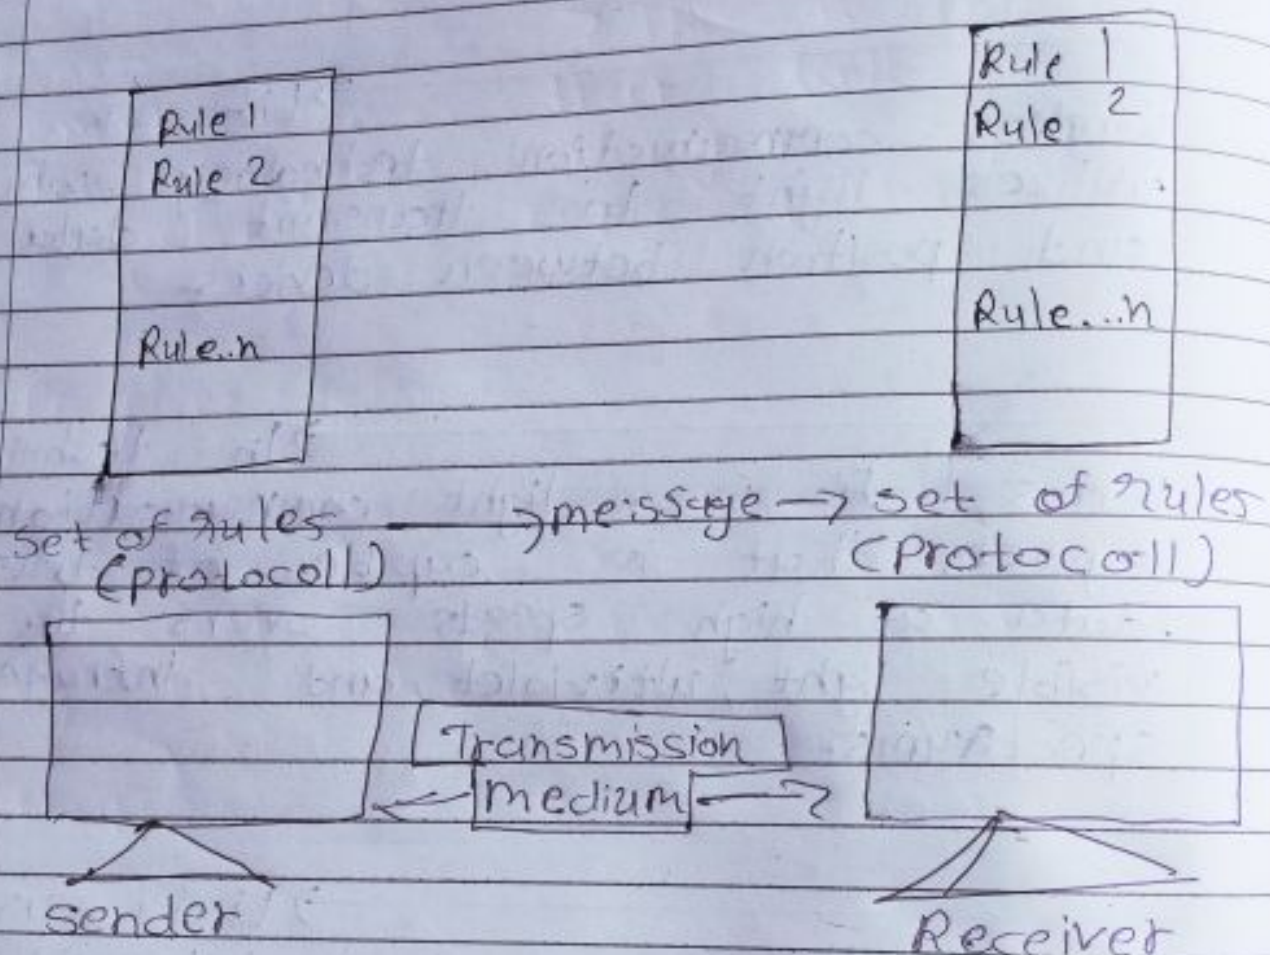 Rule 1
Rule 2
Rule..n
Rule 1
Rule 2
Rule...n
set of rules → message → set of rules
(protocoll) (protocoll)
Transmission
medium
sender
Receiver